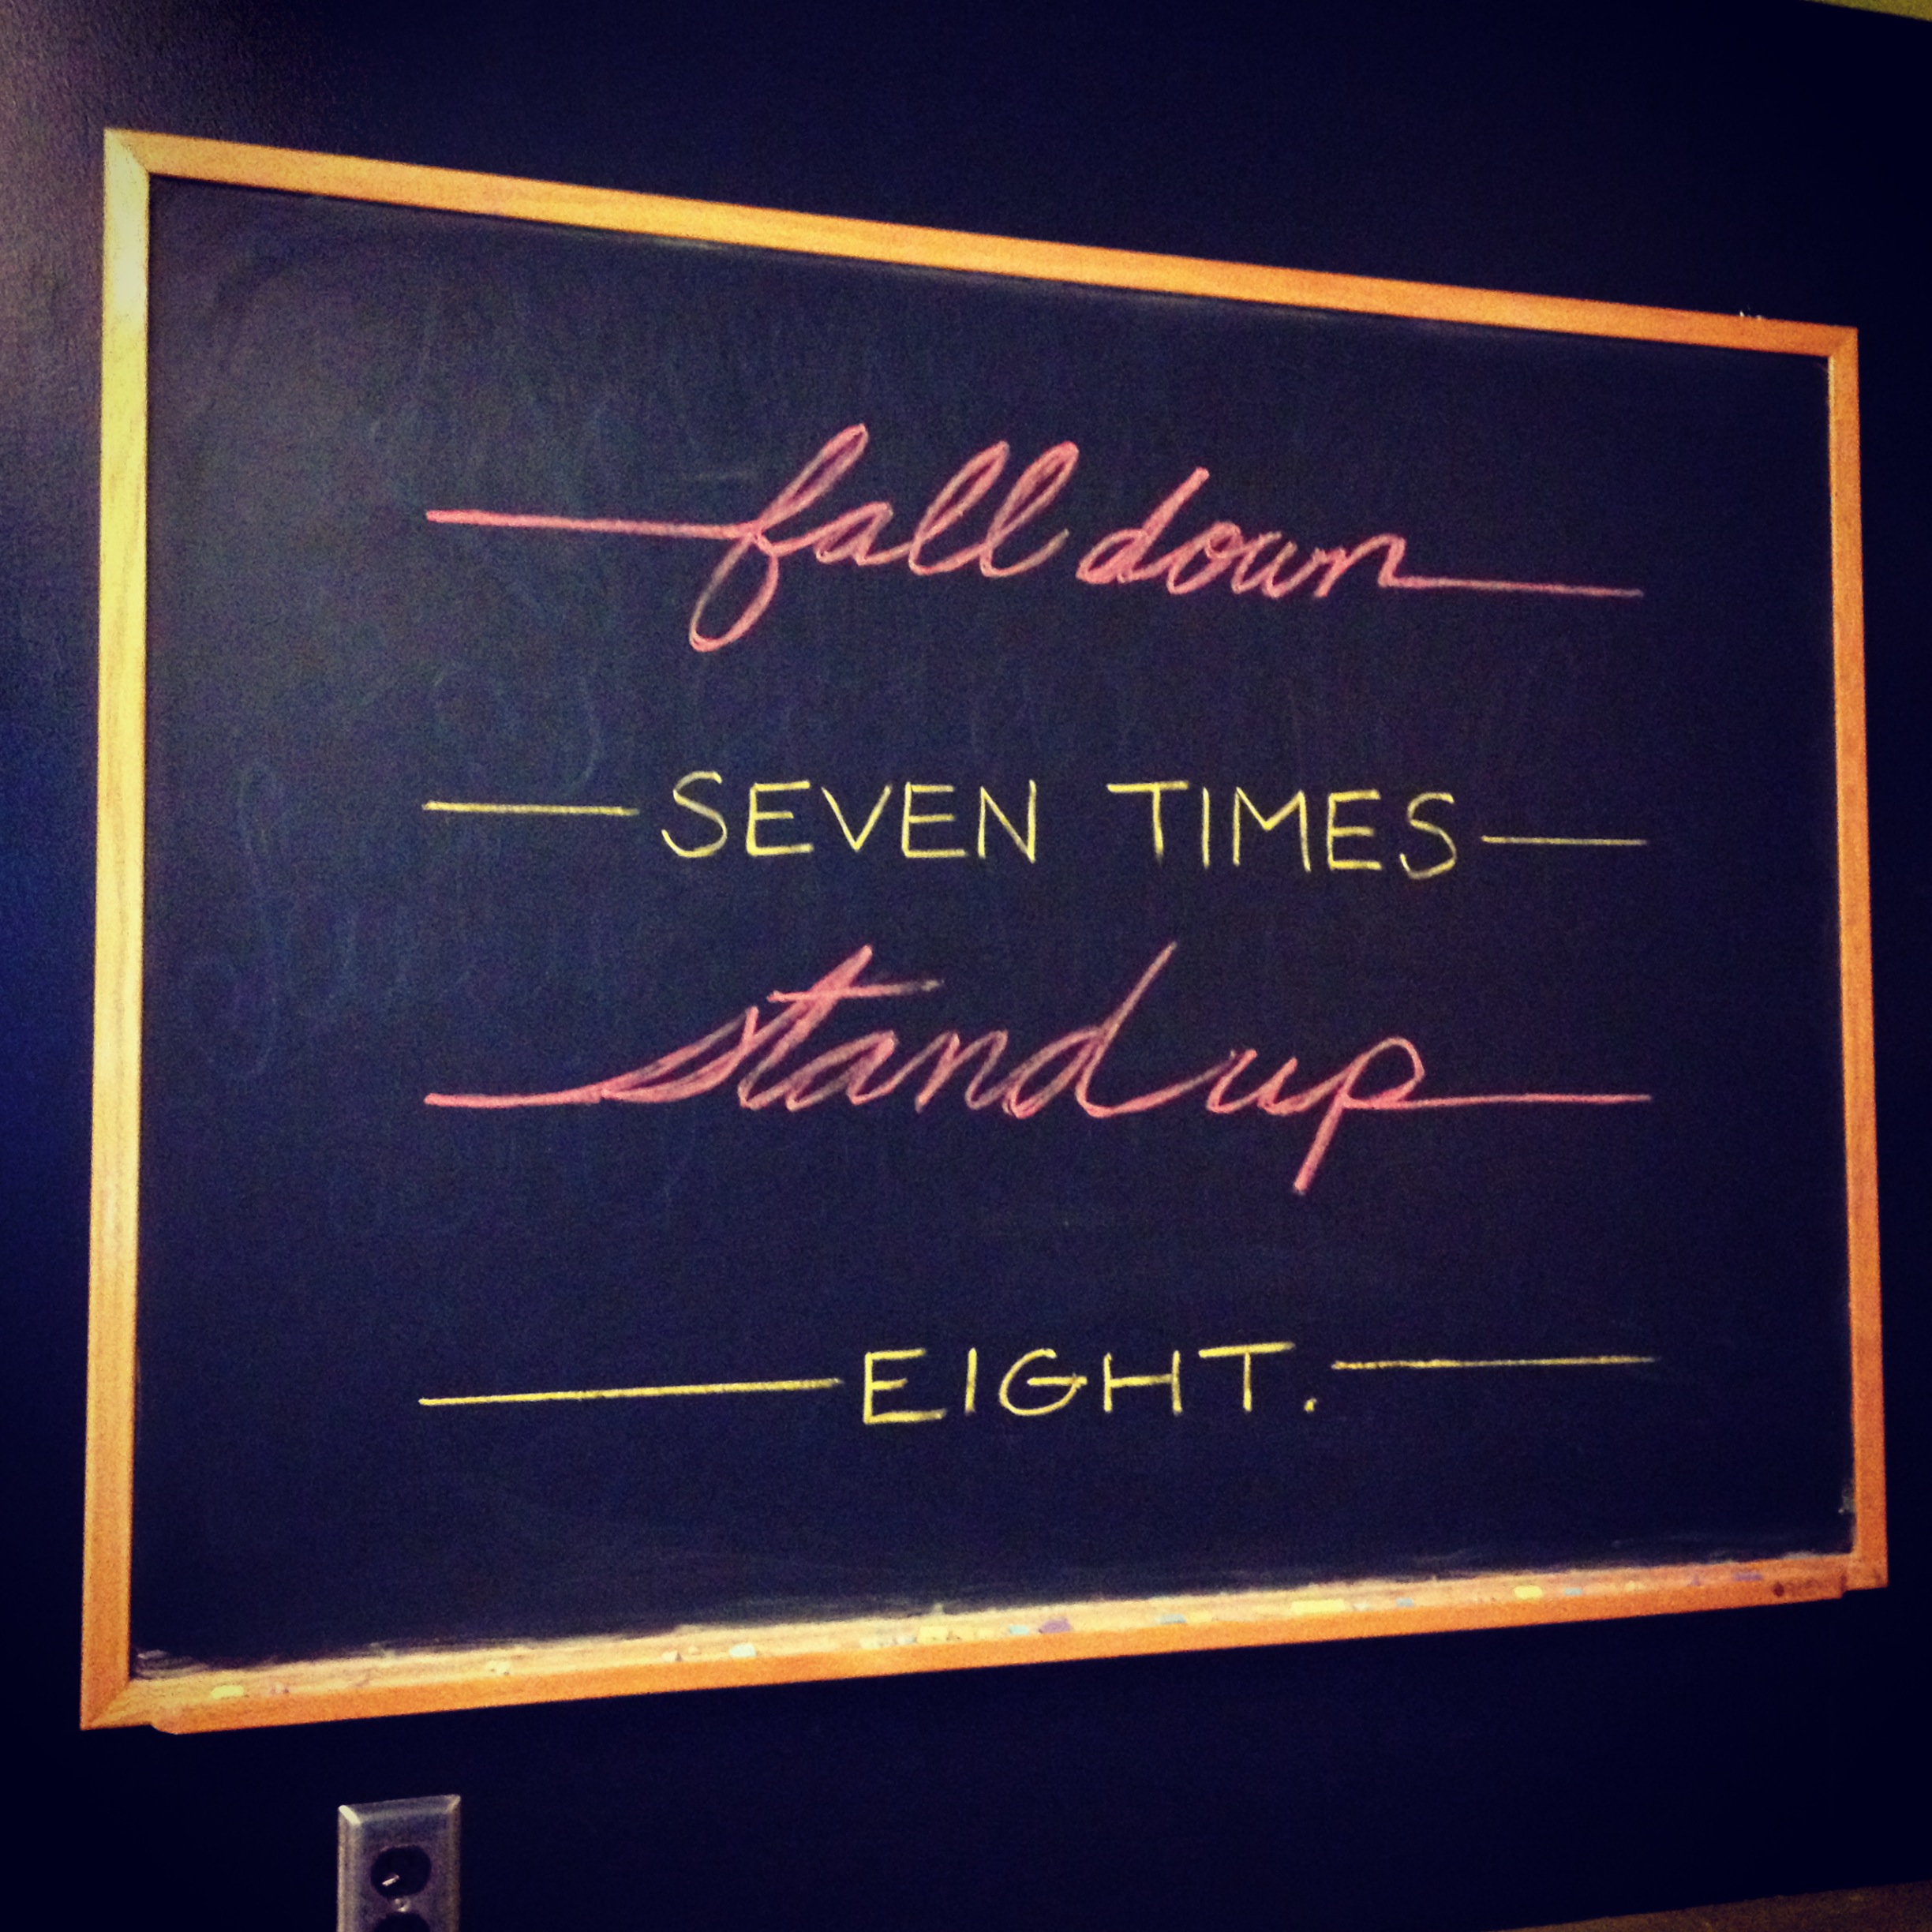 fall down
SEVEN TIMES
stand up
EIGHT.